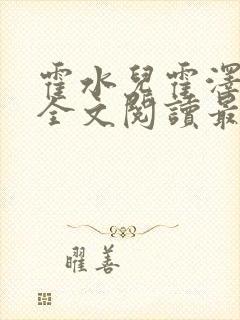 霍水兒霍澤
全文閱讀最
曜善